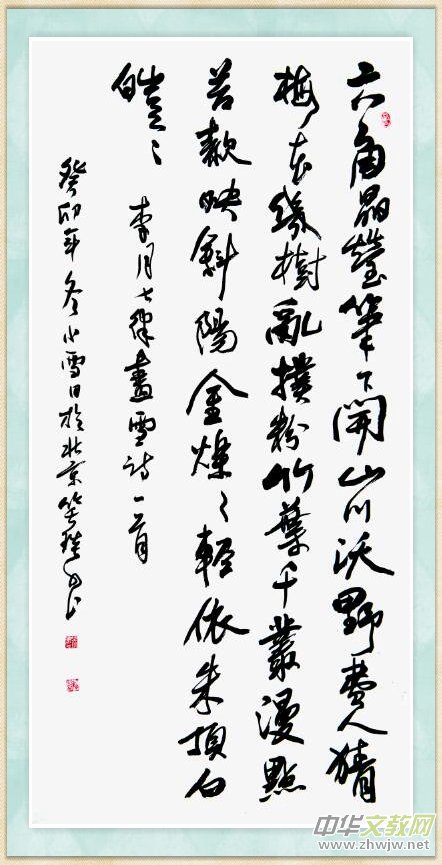 六角晶瑩筆下開山川沃野費人猜
梅花幾樹亂撲粉竹葉千叢漫點
苔欹映斜陽金爍〻輕依朱頂白
皚〻
李月七律畫雪詩一首
癸卯年冬小雪日於北京
中华文教网
www.zhwjw.net